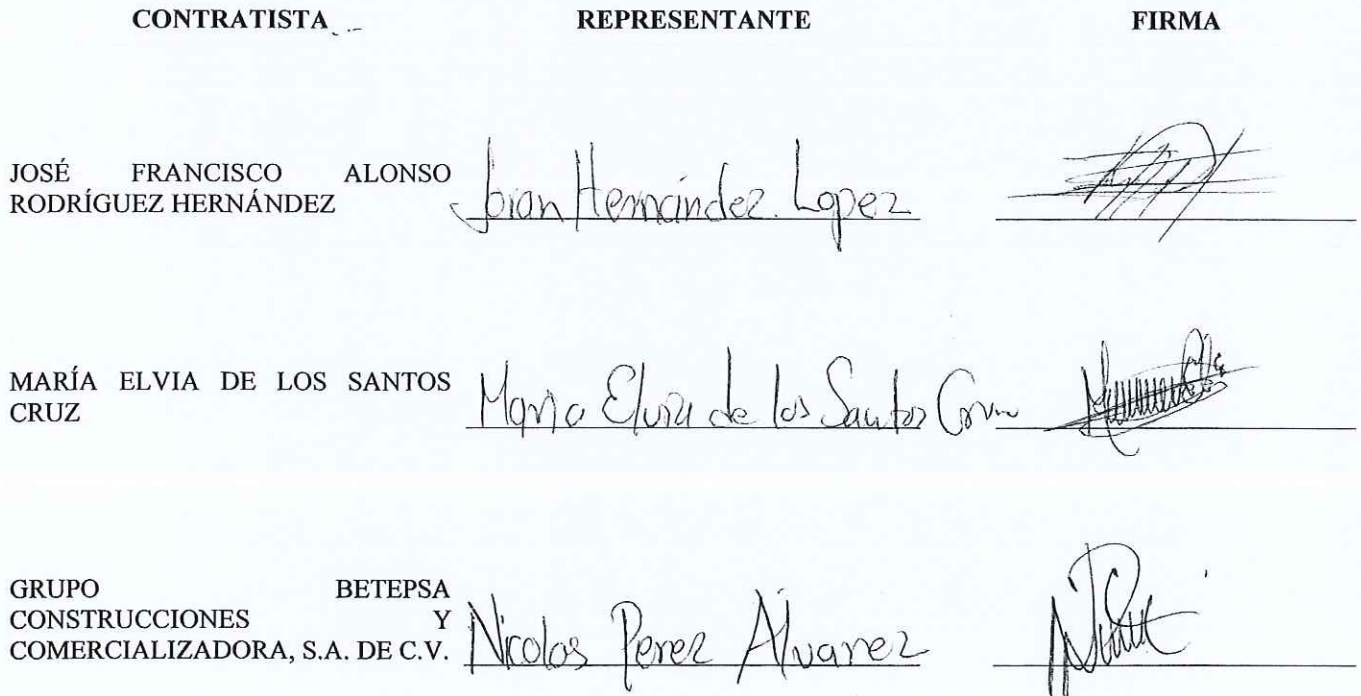 CONTRATISTA REPRESENTANTE FIRMA
JOSÉ FRANCISCO ALONSO
RODRÍGUEZ HERNÁNDEZ
Hernández Lopez
MARÍA ELVIA DE LOS SANTOS
CRUZ
Maria Elvia de los Santos Cruz
GRUPO BETEPSA
CONSTRUCCIONES Y
COMERCIALIZADORA, S.A. DE C.V.
Nicolas Perez Alvarez